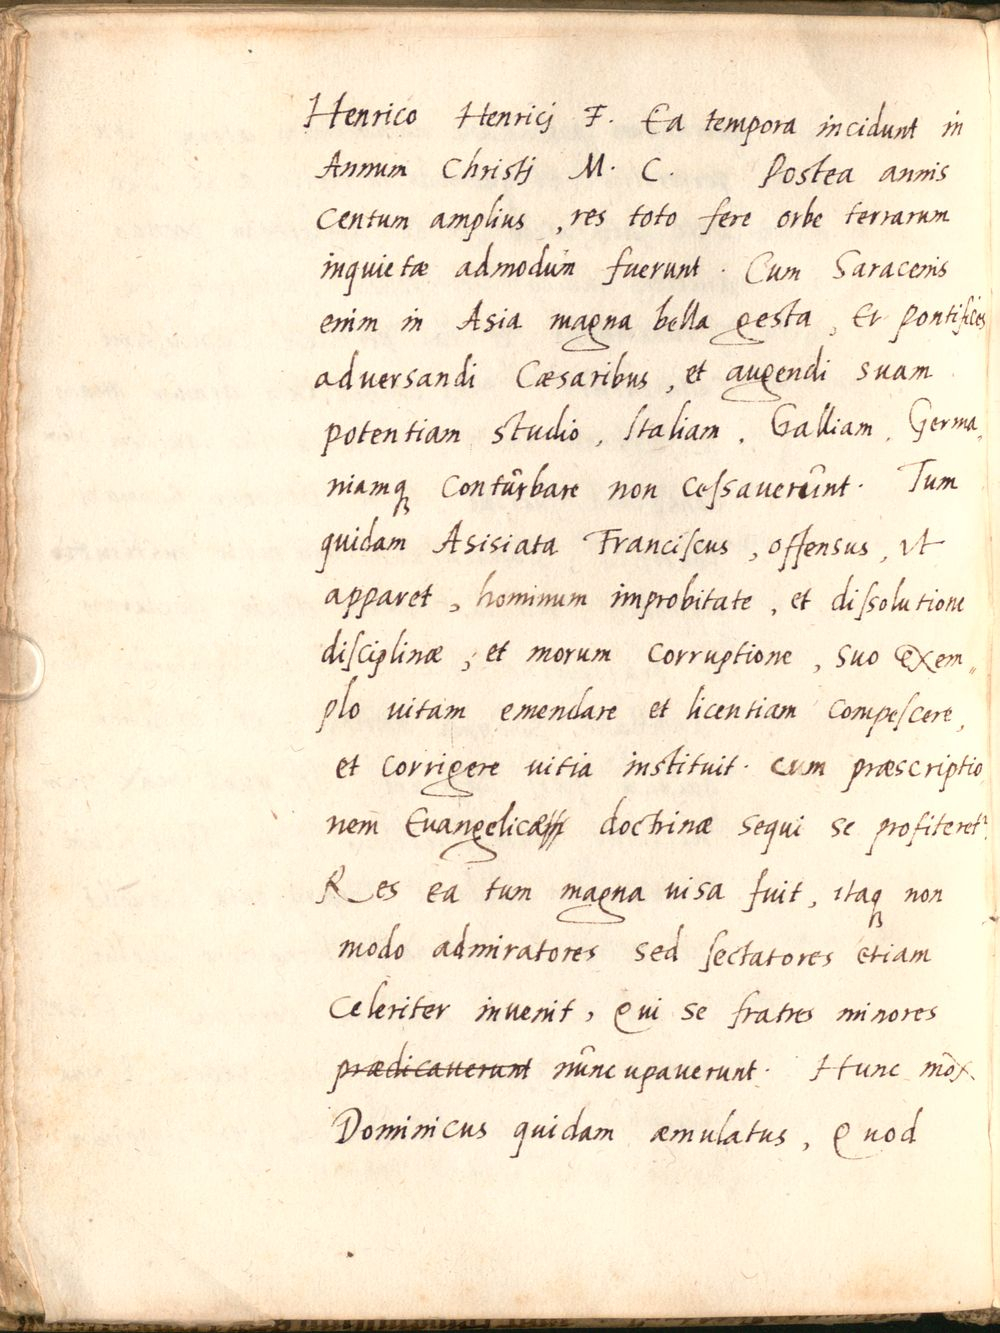 Henrico Henricj F. Ea tempora incidunt in
Annum Christj M. C. Postea annis
centum amplius, res toto fere orbe terrarum
inquietæ admodũ fuerunt. Cum Saracenis
enim in Asia magna bella gesta, Et Pontifices
adversandi Cæsaribus, et augendi suam
potentiam studio, Italiam, Galliam, Germa„
niamq contũrbare non ceſsaverũnt. Tum
quidam Asisiata Franciſcus, offensus, ut
apparet, hominum improbitate, et diſsolutione
diſciplinæ, et morum corruptione, suo exem„
plo uitam emendare et licentiam compeſcere,
et corrigere uitia instituit. cum præscriptio
nem Euangelicæ doctrinæ sequi se profiteret
Res ea tum magna uisa fuit, itaq non
modo admiratores sed ſectatores etiam
celeriter invenit, Qui se fratres minores
prædicauerunt nũncupauerunt. Hunc mox
Dominicus quidam æmulatus, Quod